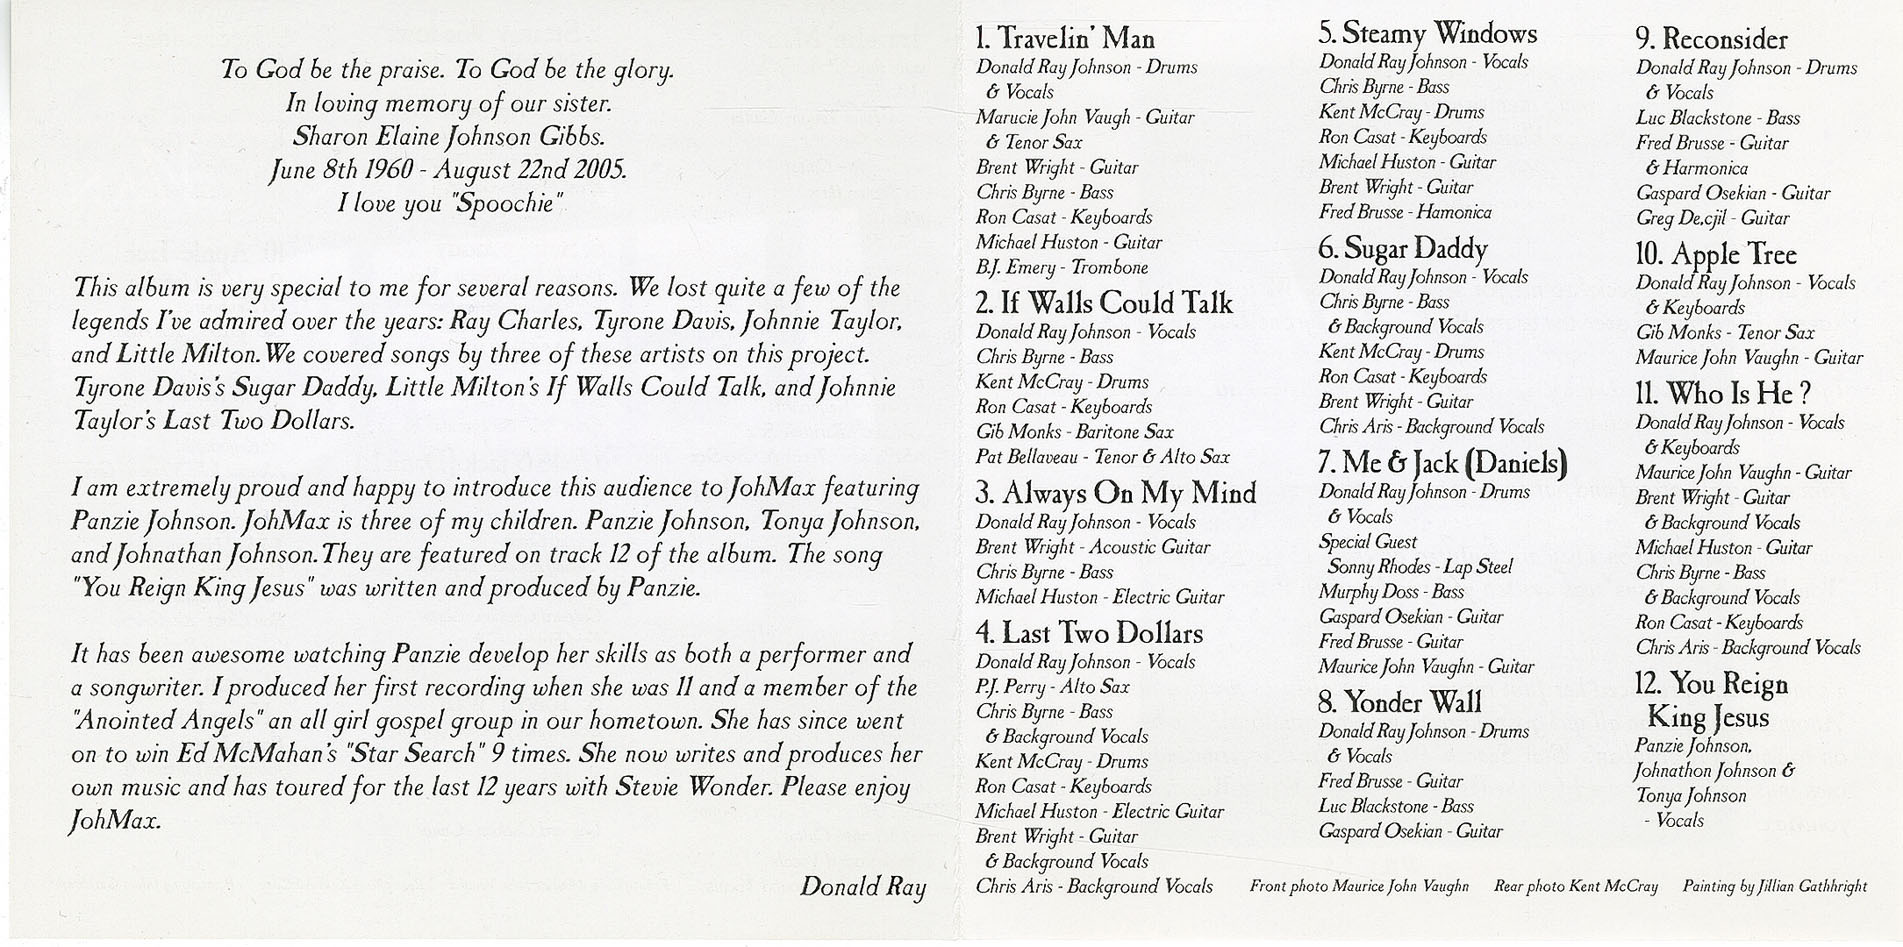 To God be the praise. To God be the glory.
In loving memory of our sister.
Sharon Elaine Johnson Gibbs.
June 8th 1960 - August 22nd 2005.
I love you "Spoochie"
This album is very special to me for several reasons. We lost quite a few of the
legends I've admired over the years: Ray Charles, Tyrone Davis, Johnnie Taylor,
and Little Milton. We covered songs by three of these artists on this project.
Tyrone Davis's Sugar Daddy, Little Milton's If Walls Could Talk, and Johnnie
Taylor's Last Two Dollars.
I am extremely proud and happy to introduce this audience to JohMax featuring
Panzie Johnson. JohMax is three of my children. Panzie Johnson, Tonya Johnson,
and Johnathan Johnson. They are featured on track 12 of the album. The song
"You Reign King Jesus" was written and produced by Panzie.
It has been awesome watching Panzie develop her skills as both a performer and
a songwriter. I produced her first recording when she was 11 and a member of the
"Anointed Angels" an all girl gospel group in our hometown. She has since went
on to win Ed McMahan's "Star Search" 9 times. She now writes and produces her
own music and has toured for the last 12 years with Stevie Wonder. Please enjoy
JohMax.
Donald Ray
1. Travelin' Man
Donald Ray Johnson - Drums
& Vocals
Marucie John Vaugh - Guitar
& Tenor Sax
Brent Wright - Guitar
Chris Byrne - Bass
Ron Casat - Keyboards
Michael Huston - Guitar
B.J. Emery - Trombone
2. If Walls Could Talk
Donald Ray Johnson - Vocals
Chris Byrne - Bass
Kent McCray - Drums
Ron Casat - Keyboards
Gib Monks - Baritone Sax
Pat Bellaveau - Tenor & Alto Sax
3. Always On My Mind
Donald Ray Johnson - Vocals
Brent Wright - Acoustic Guitar
Chris Byrne - Bass
Michael Huston - Electric Guitar
4. Last Two Dollars
Donald Ray Johnson - Vocals
P.J. Perry - Alto Sax
Chris Byrne - Bass
& Background Vocals
Kent McCray - Drums
Ron Casat - Keyboards
Michael Huston - Electric Guitar
Brent Wright - Guitar
& Background Vocals
Chris Aris - Background Vocals
5. Steamy Windows
Donald Ray Johnson - Vocals
Chris Byrne - Bass
Kent McCray - Drums
Ron Casat - Keyboards
Michael Huston - Guitar
Brent Wright - Guitar
Fred Brusse - Hamonica
6. Sugar Daddy
Donald Ray Johnson - Vocals
Chris Byrne - Bass
& Background Vocals
Kent McCray - Drums
Ron Casat - Keyboards
Brent Wright - Guitar
Chris Aris - Background Vocals
7. Me & Jack (Daniels)
Donald Ray Johnson - Drums
& Vocals
Special Guest
Sonny Rhodes - Lap Steel
Murphy Doss - Bass
Gaspard Osekian - Guitar
Fred Brusse - Guitar
Maurice John Vaughn - Guitar
8. Yonder Wall
Donald Ray Johnson - Drums
& Vocals
Fred Brusse - Guitar
Luc Blackstone - Bass
Gaspard Osekian - Guitar
9. Reconsider
Donald Ray Johnson - Drums
& Vocals
Luc Blackstone - Bass
Fred Brusse - Guitar
& Harmonica
Gaspard Osekian - Guitar
Greg De,cjil - Guitar
10. Apple Tree
Donald Ray Johnson - Vocals
& Keyboards
Gib Monks - Tenor Sax
Maurice John Vaughn - Guitar
11. Who Is He ?
Donald Ray Johnson - Vocals
& Keyboards
Maurice John Vaughn - Guitar
Brent Wright - Guitar
& Background Vocals
Michael Huston - Guitar
Chris Byrne - Bass
& Background Vocals
Ron Casat - Keyboards
Chris Aris - Background Vocals
12. You Reign
King Jesus
Panzie Johnson,
Johnathon Johnson &
Tonya Johnson
- Vocals
Front photo Maurice John Vaughn Rear photo Kent McCray Painting by Jillian Gathhright